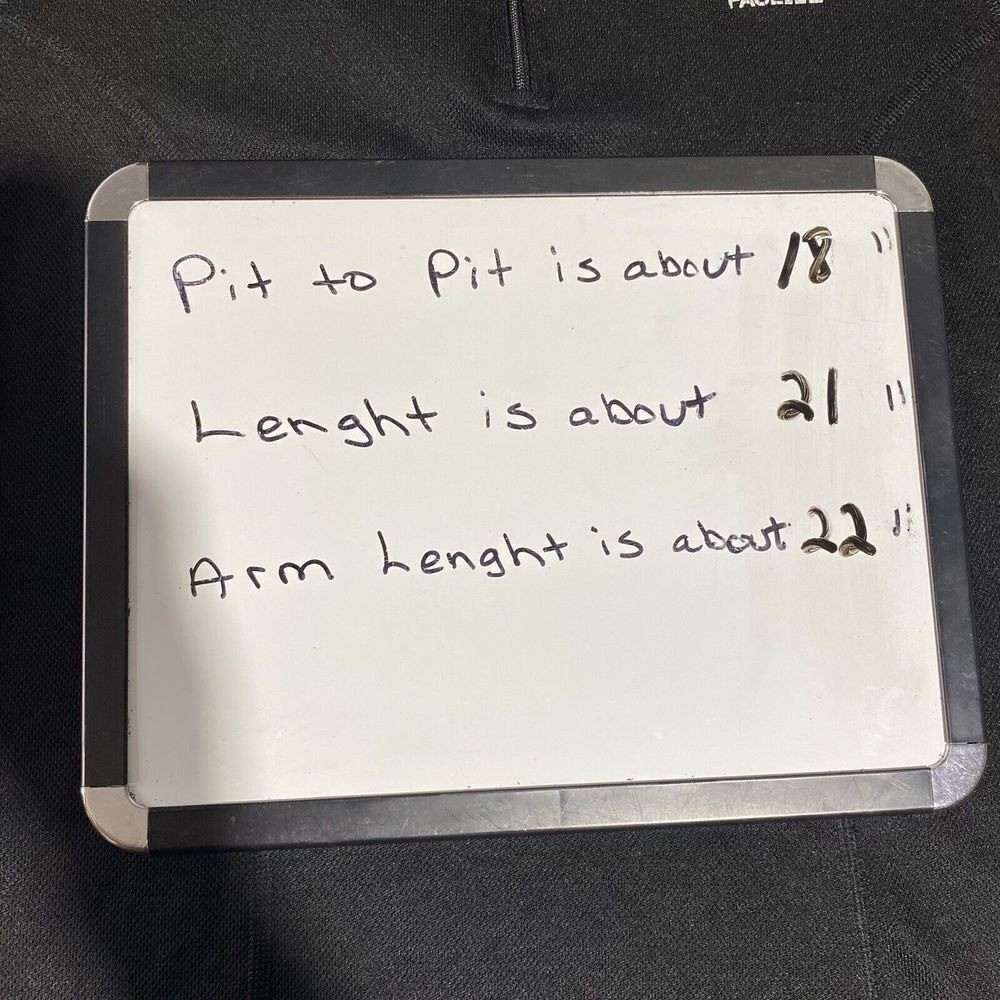 Pit to Pit is about 18 "
Lenght is about 21 "
Arm Lenght is about 22 "